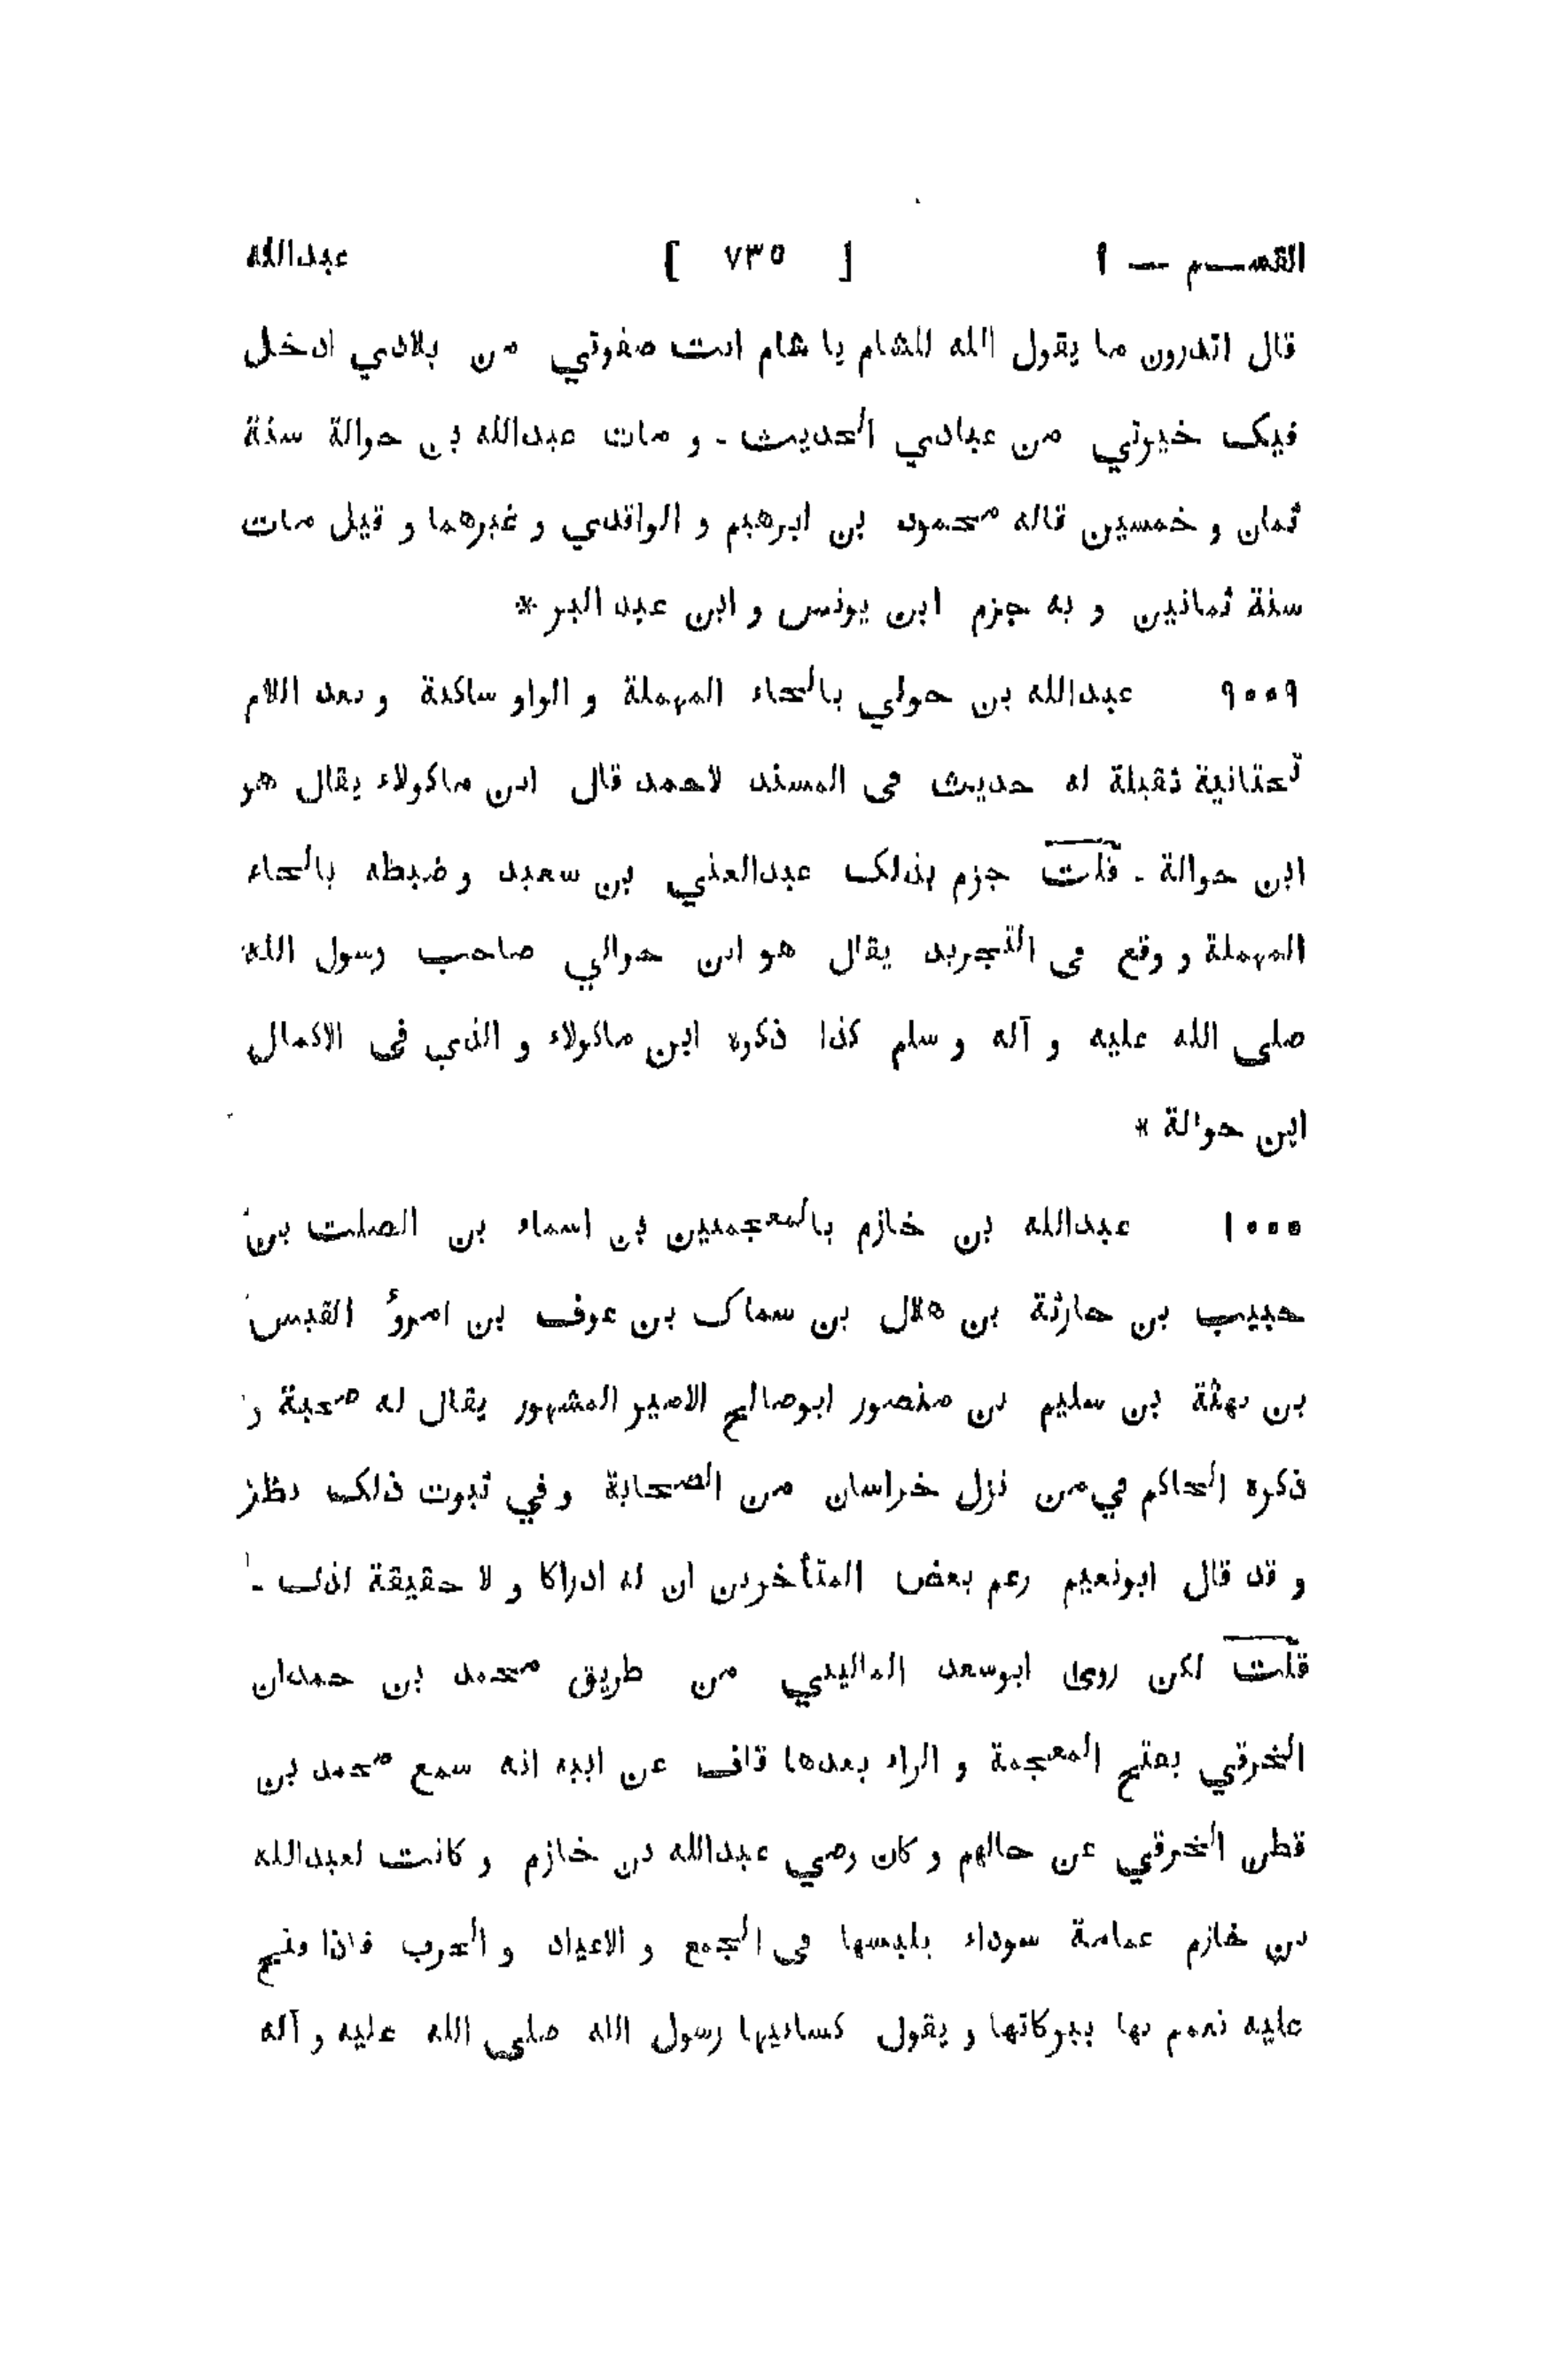 القسم — ١ [ ٧٣٥ ] عبدالله
قال اتدرون ما يقول الله للشام يا شام انت صفوتي من بلادي ادخل
فيك خيرتي من عبادي الحديث - و مات عبدالله بن حوالة سنة
ثمان و خمسين قاله محمود بن ابرهيم و الواقدي و غيرهما و قيل مات
سنة ثمانين و به جزم ابن يونس و ابن عبد البر *
٩٥٥٩ عبدالله بن حولي بالحاء المهملة و الواو ساكنة و بعد اللام
تحتانية ثقيلة له حديث في المسند لاحمد قال ابن ماكولاء يقال هو
ابن حوالة - قلت جزم بذلك عبدالغني بن سعيد و ضبطه بالحاء
المهملة و وقع في التجريد يقال هو ابن حوالي صاحب رسول الله
صلى الله عليه و آله و سلم كذا ذكره ابن ماكولاء و الذي في الاكمال
ابن حوالة *
١٥٥٥ عبدالله بن خازم بالمعجمتين بن اسماء بن الصلت بن
حبيب بن حارثة بن هلال بن سماك بن عوف بن امرؤ القيس
بن بهثة بن سليم بن منصور ابوصالح الامير المشهور يقال له صحبة و
ذكره الحاكم في من نزل خراسان من الصحابة و في ثبوت ذلك نظر
و قد قال ابونعيم زعم بعض المتأخرين ان له ادراكا و لا حقيقة لذلك -
قلت لكن روى ابوسعد الماليني من طريق محمد بن حمدان
الخرقي بفتح المعجمة و الراء بعدها قاف عن ابيه انه سمع محمد بن
قطن الخرقي عن خالهم و كان وصي عبدالله بن خازم و كانت لعبدالله
بن خازم عمامة سوداء يلبسها في الجمع و الاعياد و الحرب فاذا فتح
عليه تعمم بها ببركاتها و يقول كسانيها رسول الله صلى الله عليه و آله